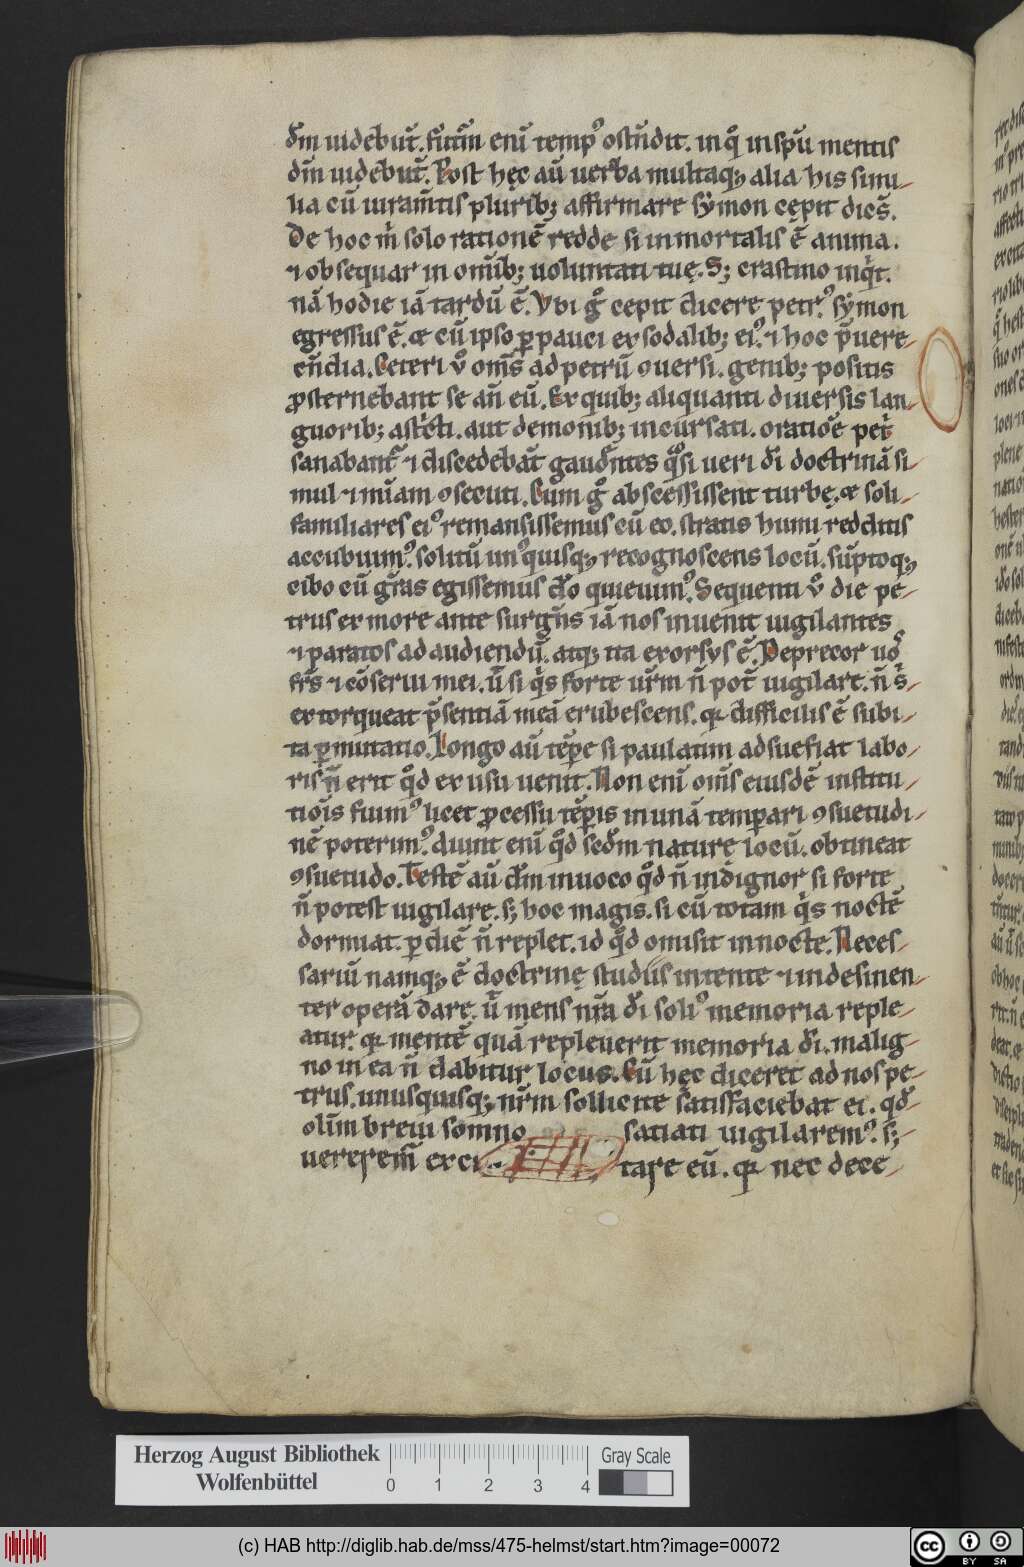 dm̄ uidebut̄. futm̄ eni᷎ tempꝰ ostn̄dit. in qͦ inspu᷎ mentis
dm̄ uidebut̄. Post hęc au᷎ uerba multaqꝫ alia his simi-
lia cū iuram̄tis pluribꝫ affirmare sẏmon cępit dicē̄s.
De hoc m̄ solo rationē redde si inmortalis ē anima.
⁊ obsequar in om̄ibꝫ uoluntati tuę. Sꝫ crastino inq̇t.
nā hodie iā tardū ē. Vbi gͦ cepit dicere petrꝰ. sẏmon
egressus ē. ⁊ cū ipso ꝑpauci ex sodalibꝫ eiꝰ. ⁊ hoc p̄uere-
cn̄dia. Ceteri vͦ om̄s ad petrū ꝯuersi. genibꝫ positis
ꝓsternebant se an̄ eū. Ex quibꝫ aliquanti diuersis lan-
guoribꝫ astͥcti. aut demonibꝫ incursati. oratiōe petͥ
sanabant᷑ ⁊ discedebāt gaudn̄tes qͣsi ueri dī doctrinā si-
mul ⁊ mīam ꝯsecuti. Cum gͦ abscessissent turbę. ⁊ soli
familiares eiꝰ remansissemus cū eo. stratis humi redditis
accubuimꝰ. solitū unꝰquisqꝫ recognoscens locū. sūptoqꝫ
cibo cū grās egissemus dō quieuimꝰ. Sequenti vͦ die pe-
trus ex more ante surgn̄s iā nos inuenit uigilantes
⁊ paratos ad audiendū. atqꝫ ita exorsỵs ē. Deprecor uoͦ
frs̄ ⁊ cōserui mei. ut̄ si qͥs forte urm̄ n̄ pot̄ uigilare. n̄ sͥ
extorqueat p̄sentiā meā erubescens. qꝛ difficilis ē subi-
ta ꝑmutatio. Longo au᷎ tēpe si paulatim adsuefiat labo-
ris n̄ erit qͦd ex usu uenit. Non eni᷎ om̄s eiusdē institu-
tiōis fuimꝰ licet ꝓcessu tēꝑis in unā temperari ꝯsuetudi-
nē poterimꝰ. aiunt eni᷎ qͦd sedm̄ nature locū. obtineat
ꝯsuetudo. Testē au᷎ dm̄ inuoco qͦd n̄ indignor si forte
n̄ potest uigilare. sꝫ hoc magis. si cū totam qͥs noctē
dormiat. ꝑ diē n̄ replet. id qͦd omisit in nocte. Neces-
sariū namqꝫ ē doctrinę studiis intente ⁊ indesinen-
ter operā dare. ut̄ mens nr̄a dī soliꝰ memoria reple-
atur. qꝛ mentē quā repleuerit memoria dī. malig-
no in ea n̄ dabitur locus. Cū hęc diceret ad nos pe-
trus. unusquisqꝫ nrm̄ sollicite satisfaciebat ei. qd̄
olīm breui somno satiati uigilaremꝰ. sꝫ
uereremꝰ exci- tare eū. qꝛ nec dece-
Herzog August Bibliothek
Wolfenbüttel
0 1 2 3 4
Gray Scale
(c) HAB http://diglib.hab.de/mss/475-helmst/start.htm?image=00072
cc BY SA